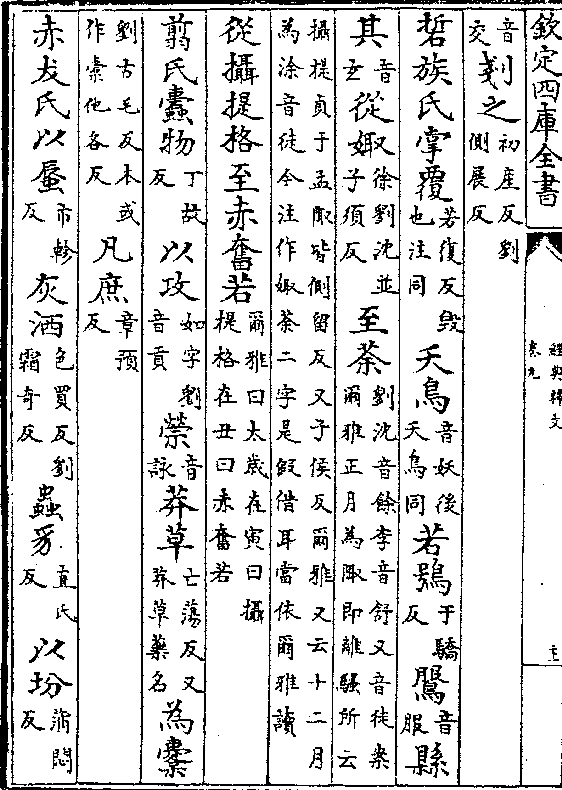 欽定四庫全書
經典釋文
卷九
音交剗之初産反劉側展反
硩族氏掌覆芳復反毁也注同夭鳥音妖後夭鳥同若鴞于驕反鵩音服縣
其音玄從娵徐劉沈並子須反至荼劉沈音餘李音舒又音徒案爾雅正月為陬即離騷所云
攝提貞于孟陬皆側留反又子侯反爾雅又云十二月為涂音徒今注作娵荼二字是假借耳當依爾雅讀
從攝提格至赤奮若爾雅曰太歲在寅曰攝提格在丑曰赤奮若
翦氏蠹物丁故反以攻如字劉音貢禜音詠莽草亡蕩反又莽草藥名為櫜
劉古毛反本或作橐他各反凡庶章預反
赤犮氏以蜃市軫反灰洒色買反劉霜寄反蟲豸直氏反以坋蒲悶反